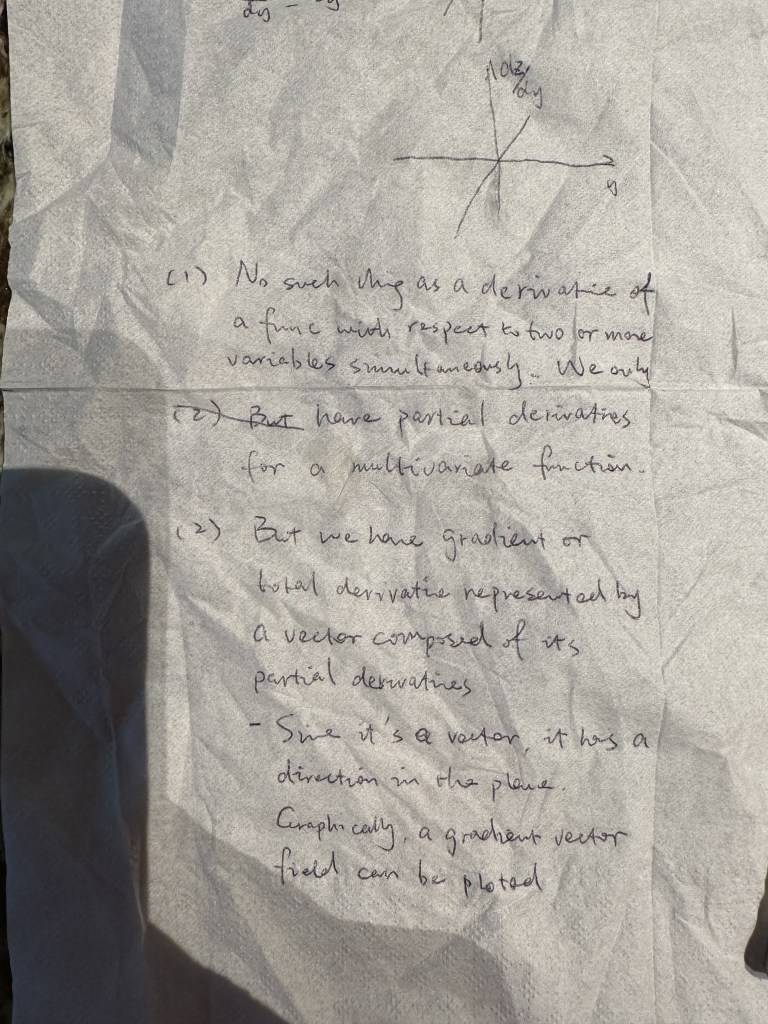 dy =
dz/dy
y
(1) No such thing as a derivative of
a func with respect to two or more
variables simultaneously. We only
(2) But have partial derivatives
for a multivariate function.
(2) But we have gradient or
total derivative represented by
a vector composed of its
partial derivatives
- Since it's a vector, it has a
direction in the plane.
Graphically, a gradient vector
field can be ploted